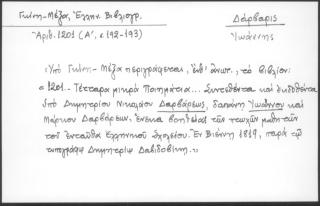 Γκίνη - Μέξα, Ἑλλην. Βιβλιογρ.
Δάρβαρις
Ἰωάννης
Ἀριθ. 1201 (Α', σ. 192-193)
Ὑπὸ Γκίνη - Μέξα περιγράφεται, ἐνθ' ἀνωτ., τὸ βιβλίον:
«1201.- Τέσσαρα μικρὰ Ποιημάτια... Συντεθέντα καὶ ἐκδοθέντα
ὑπὸ Δημητρίου Νικολάου Δαρβάρεως, δαπάνῃ Ἰωάννου καὶ
Μάρκου Δαρβάρεων, ἕνεκα βοηθείας τῶν πτωχῶν μαθητῶν
τοῦ ἐνταῦθα Ἑλληνικοῦ Σχολείου. Ἐν Βιέννῃ 1819, παρὰ τῷ
τυπογράφῳ Δημητρίῳ Δαβιδοβίκῃ.»